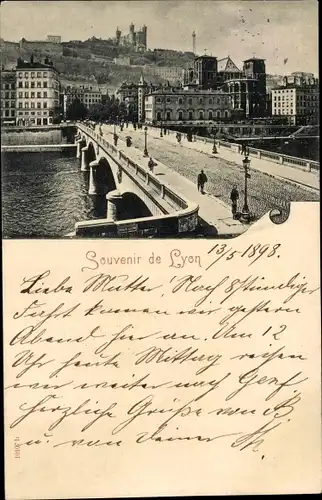 Souvenir de Lyon 13/5 1898.
Liebe Mutter, Nach 8stündiger
Fahrt kamen wir gestern
Abend hier an. Um 12
Uhr heute Mittag reisen
wir weiter nach Genf
herzliche Grüße von B
u. von Deiner